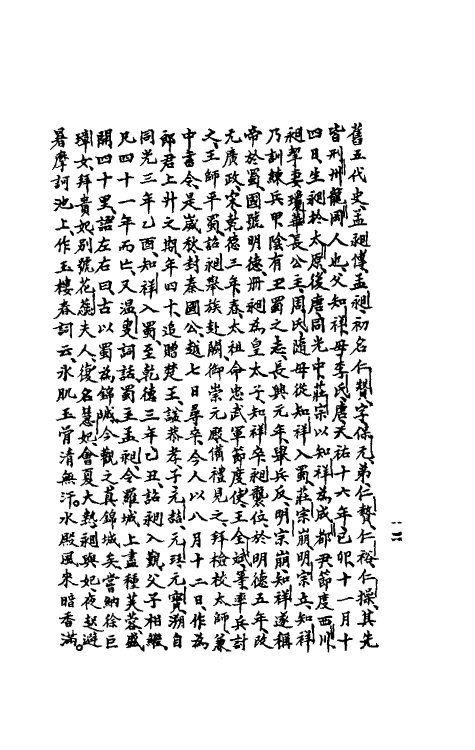 舊五代史孟昶僅孟昶初名仁贊字保元弟仁贄仁裕仁操其先
皆刑州龍岡人也父知祥母李氏唐天祐十六年己卯十一月十
四日生昶於太原後唐同光中莊宗以知祥為成都尹節度西川
昶挈妻瓊華長公主周氏隨母從知祥入蜀莊宗崩明宗立知祥
乃訓練兵甲陰有王蜀之志長興元年舉兵反明宗崩知祥遂稱
帝於蜀國號明德冊昶為皇太子知祥卒昶襲位於明德五年改
元廣政宋乾德三年春太祖命忠武軍節度使王全斌等率兵討
之王師平蜀詔昶舉族赴闕御崇元殿備禮見之拜檢校太師兼
中書令是歲秋封秦國公越七日尋卒今人以八月十二日作為
郎君上升之期年四十追贈楚王諡恭孝子元喆元珏元寶溯自
同光三年乙酉知祥入蜀至乾德三年乙丑詔昶入覲父子相繼
凡四十一年而亡又溫叟詞話蜀主孟昶令羅城上盡種芙蓉盛
開四十里語左右曰古以蜀為錦城今觀之真錦城矣嘗納徐匡
璋女拜貴妃別號花蕊夫人復名慧妃會夏大熱昶與妃夜起避
暑摩訶池上作玉樓春詞云冰肌玉骨清無汗水殿風來暗香滿
二